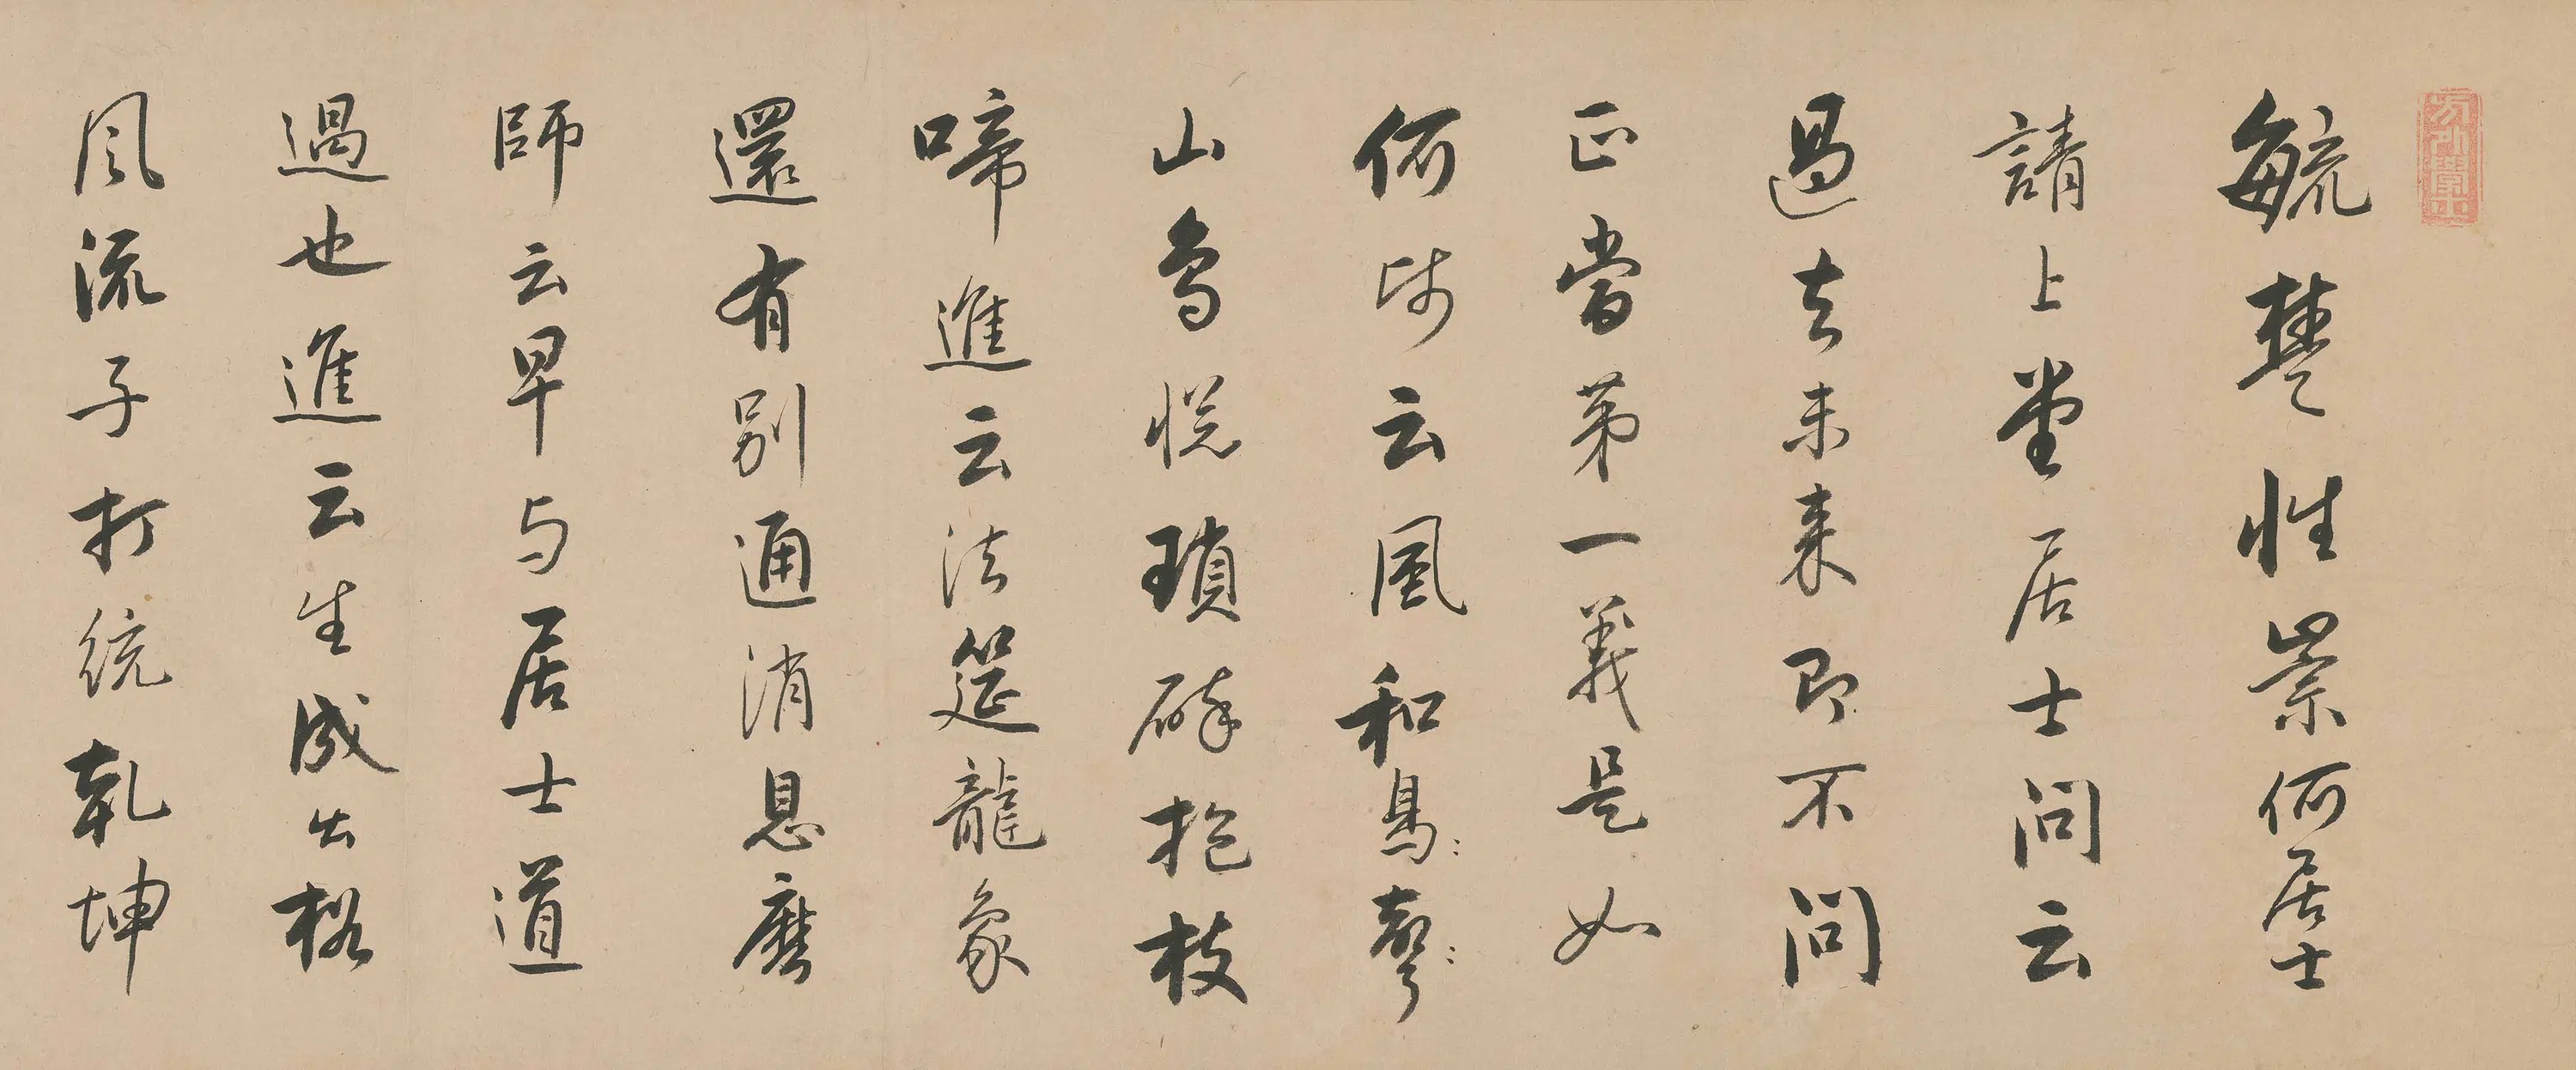 方外學士
毓楚性崇何居士
請上堂居士問云
過去未來即不問
正當第一義是如
何師云風和鳥〻聲〻
山鳥悅瑣碎抱枝
啼進云法筵龍象
還有別通消息麼
師云早与居士道
過也進云生成出格
風流子打統乾坤